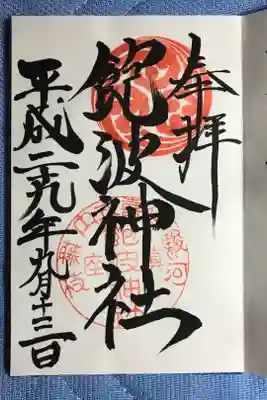 奉拝
飽波神社
平成二十九年九月十三日
駿河
鎮座
藤枝